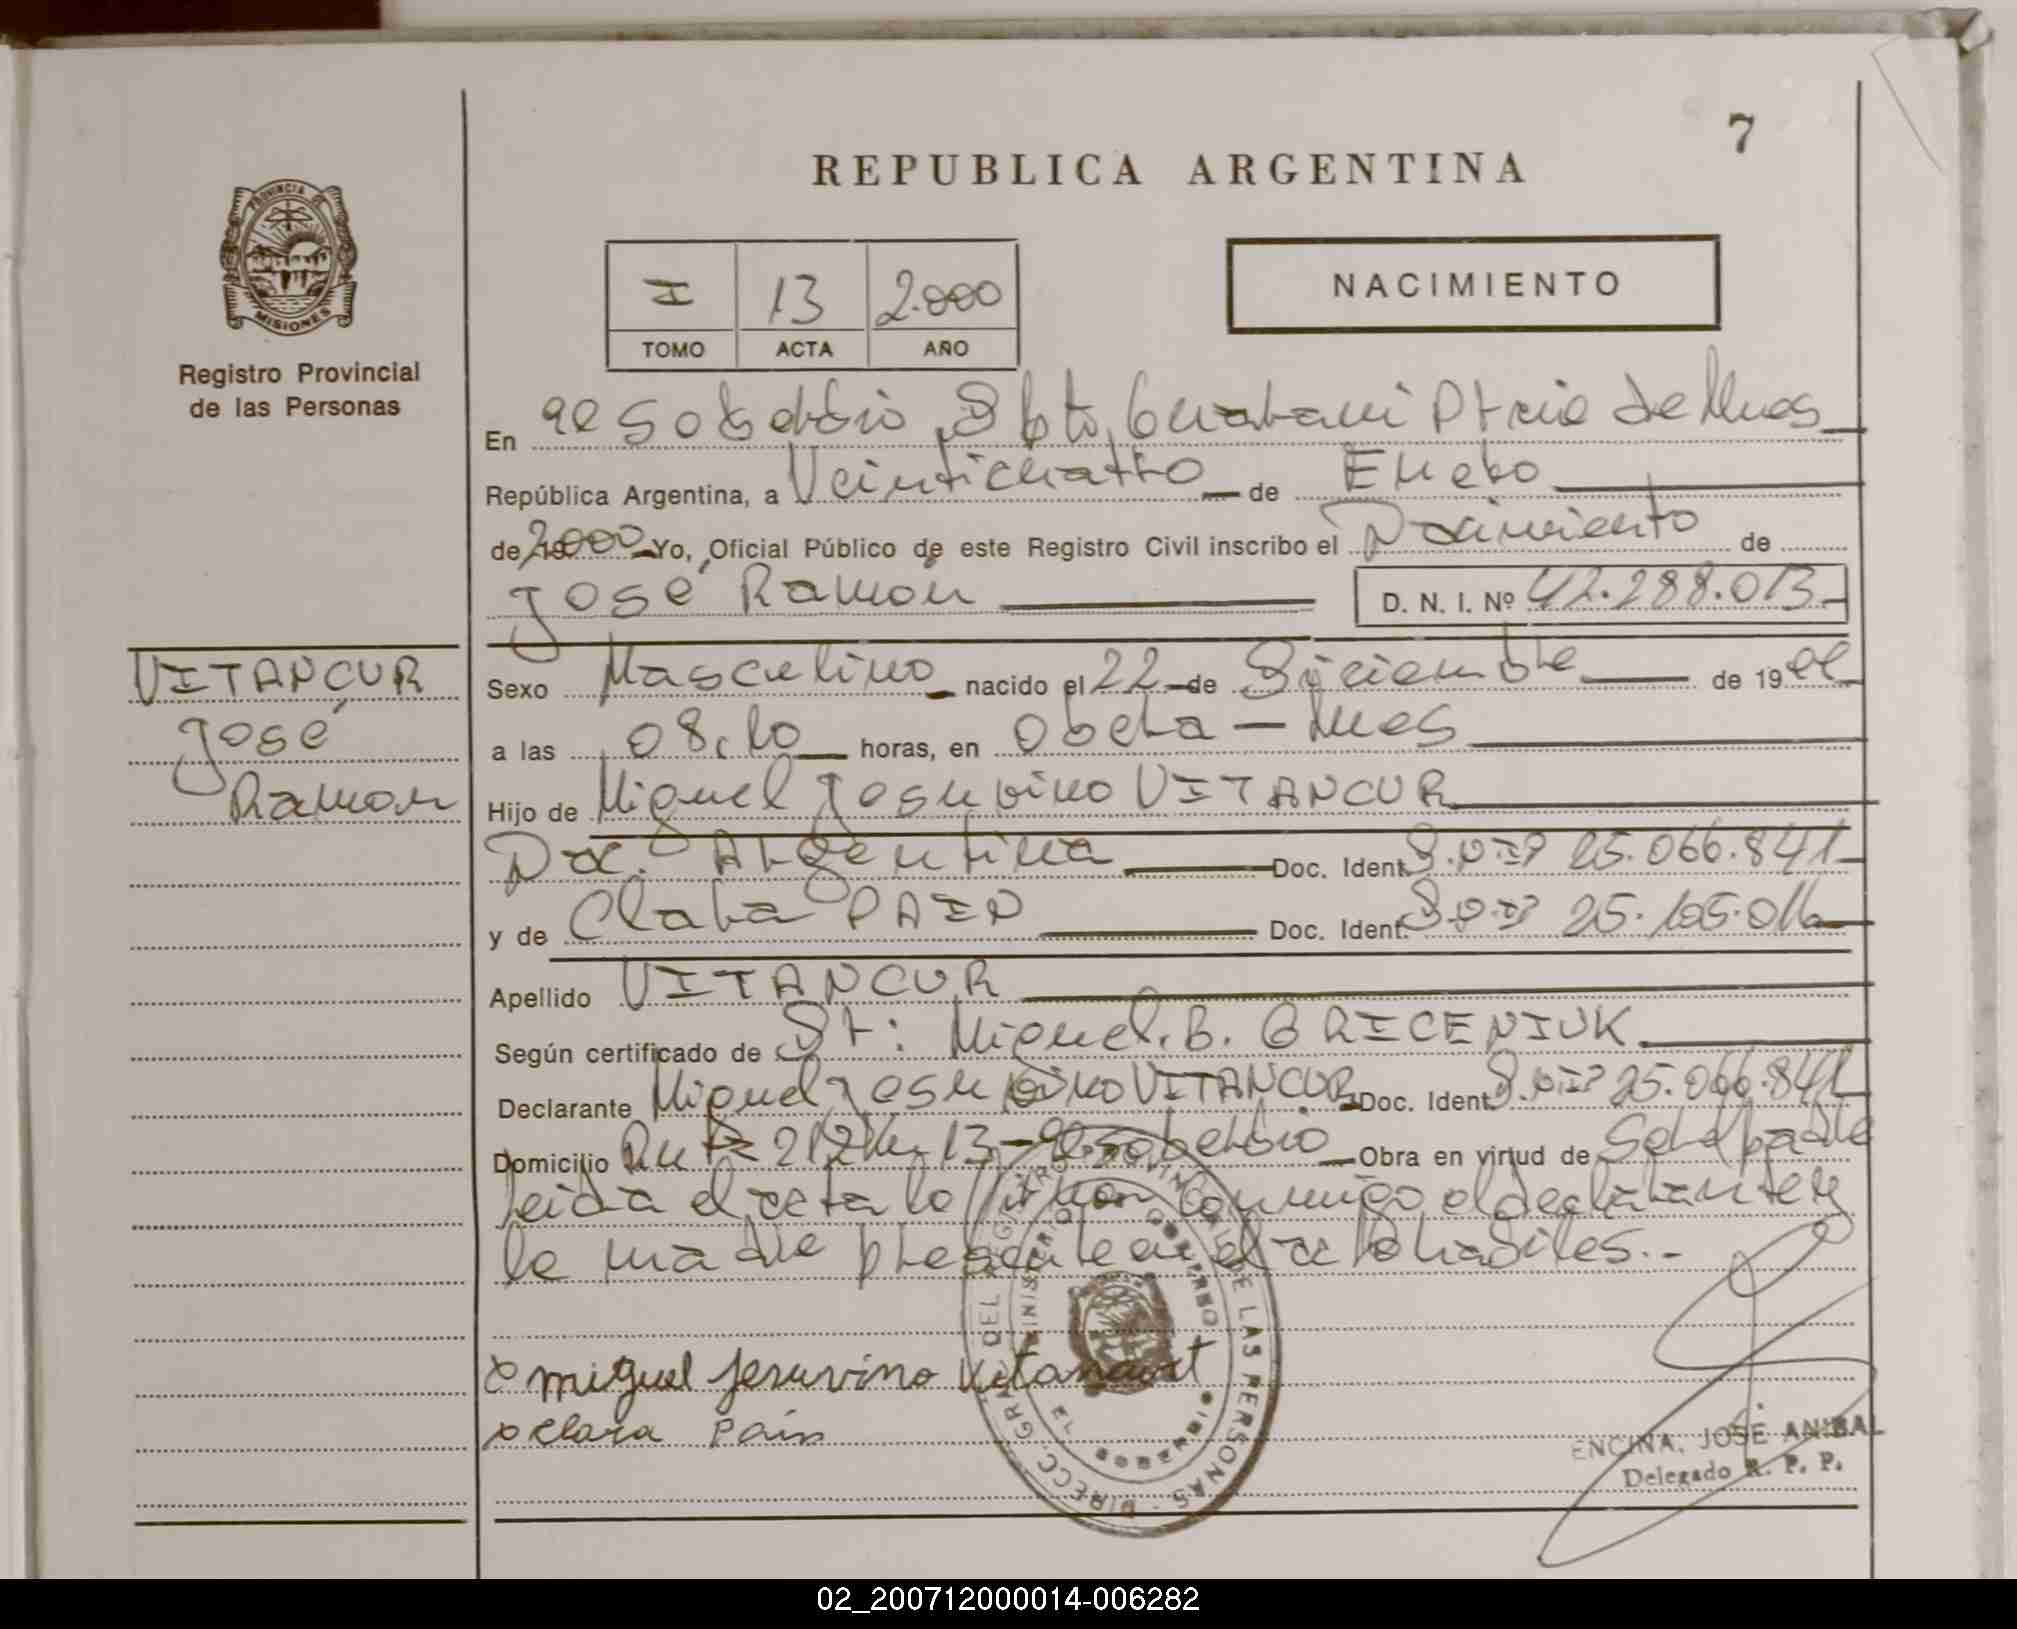 7
REPUBLICA ARGENTINA
PROVINCIA DE
MISIONES
Registro Provincial
de las Personas
NACIMIENTO
I 13 2.000
TOMO ACTA AÑO
En El Soberbio, Dpto, Guarani Pcia de Mnes
República Argentina, a Veinticuatro de Enero
de 2000 Yo, Oficial Público de este Registro Civil inscribo el Nacimiento de
José Ramón D. N. I. Nº 42.288.013.-
VITANCUR
José
Ramon
Sexo Masculino nacido el 22 de Diciembre de 19
a las 08,10 horas, en Obera - Mnes
Hijo de Miguel Jesuvino VITANCUR
Nac. Argentina Doc. Ident. D.N.I. 25.066.841
y de Clara PAIN Doc. Ident. D.N.I. 25.105.016
Apellido VITANCUR
Según certificado de Dr: Miguel. B. GRICENIUK
Declarante Miguel Jesuvino VITANCUR Doc. Ident. D.N.I. 25.066.841
Domicilio Ruta 212 Km 13 - El Soberbio Obra en virtud de Ser el padre
leida el acta lo firman conmigo el declarante y
la madre presente en el acto habiles.-
miguel Jesuvino Vitancurt
clara Pain
ENCINA, JOSÉ ANIBAL
Delegado R. P. P.
LAS PERSONAS
02_200712000014-006282